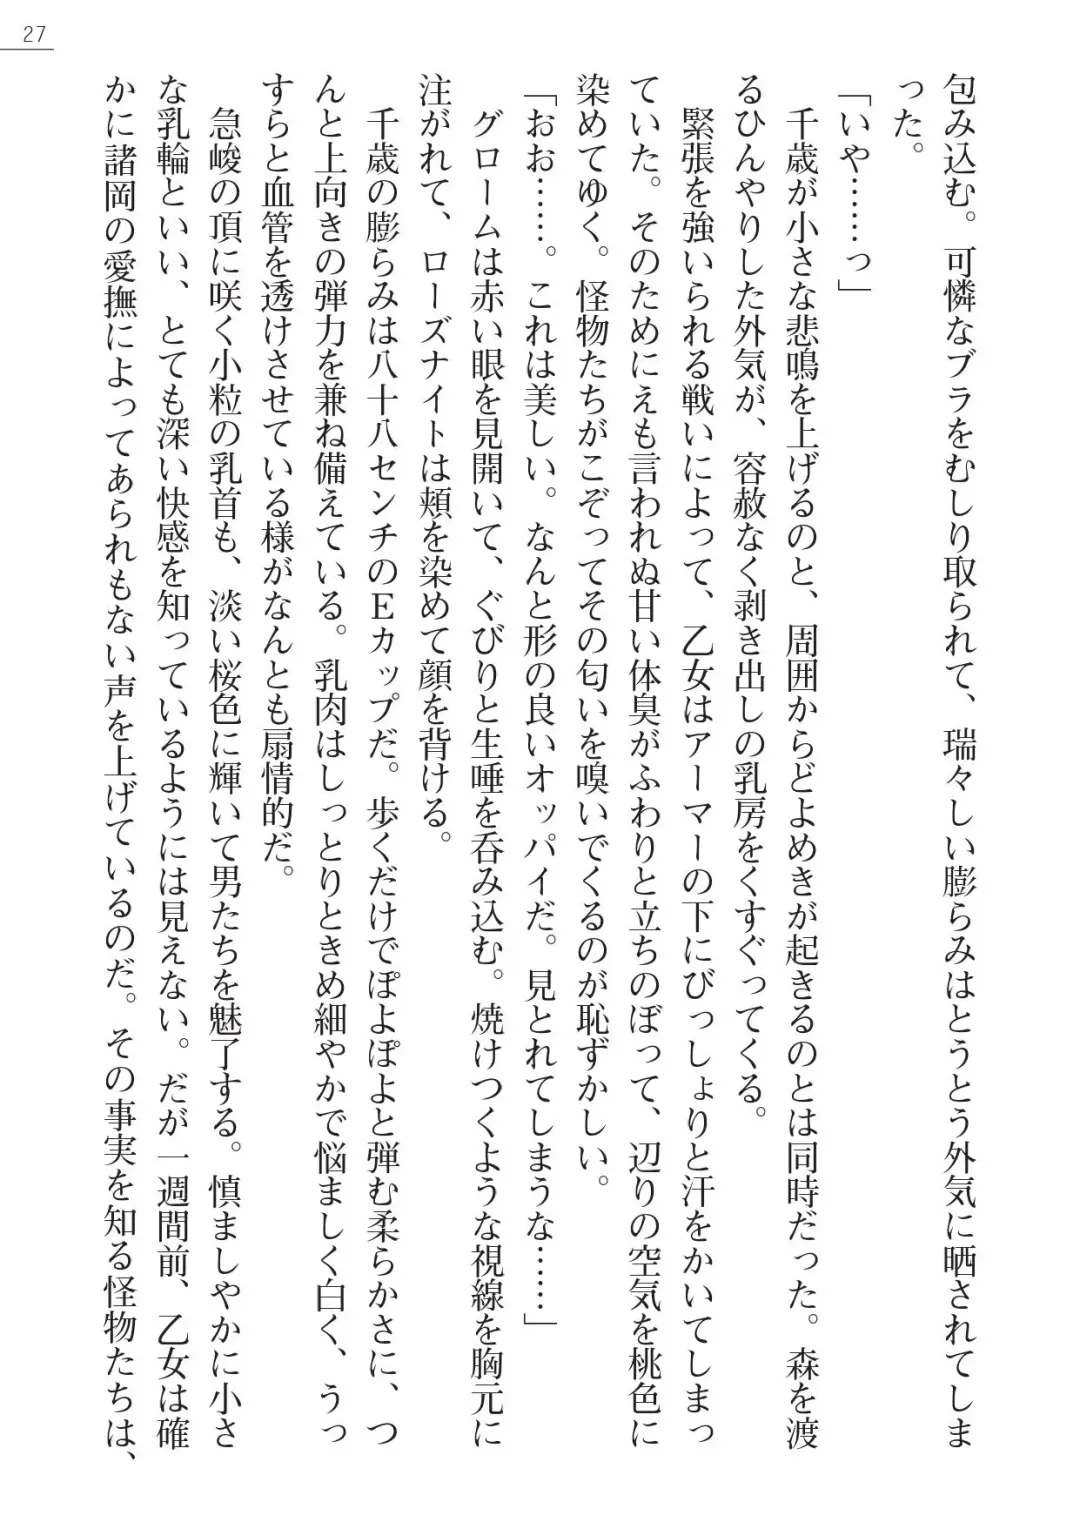 27
包み込む。可憐なブラをむしり取られて、瑞々しい膨らみはとうとう外気に晒されてしま
った。
「いや……っ」
千歳が小さな悲鳴を上げるのと、周囲からどよめきが起きるのとは同時だった。森を渡
るひんやりした外気が、容赦なく剥き出しの乳房をくすぐってくる。
緊張を強いられる戦いによって、乙女はアーマーの下にびっしょりと汗をかいてしまっ
ていた。そのためにえも言われぬ甘い体臭がふわりと立ちのぼって、辺りの空気を桃色に
染めてゆく。怪物たちがこぞってその匂いを嗅いでくるのが恥ずかしい。
「おお……。これは美しい。なんと形の良いオッパイだ。見とれてしまうな……」
グロームは赤い眼を見開いて、ぐびりと生唾を呑み込む。焼けつくような視線を胸元に
注がれて、ローズナイトは頬を染めて顔を背ける。
千歳の膨らみは八十八センチのEカップだ。歩くだけでぽよぽよと弾む柔らかさに、つ
んと上向きの弾力を兼ね備えている。乳肉はしっとりときめ細やかで悩ましく白く、うっ
すらと血管を透けさせている様がなんとも扇情的だ。
急峻の頂に咲く小粒の乳首も、淡い桜色に輝いて男たちを魅了する。慎ましやかに小さ
な乳輪といい、とても深い快感を知っているようには見えない。だが一週間前、乙女は確
かに諸岡の愛撫によってあられもない声を上げているのだ。その事実を知る怪物たちは、